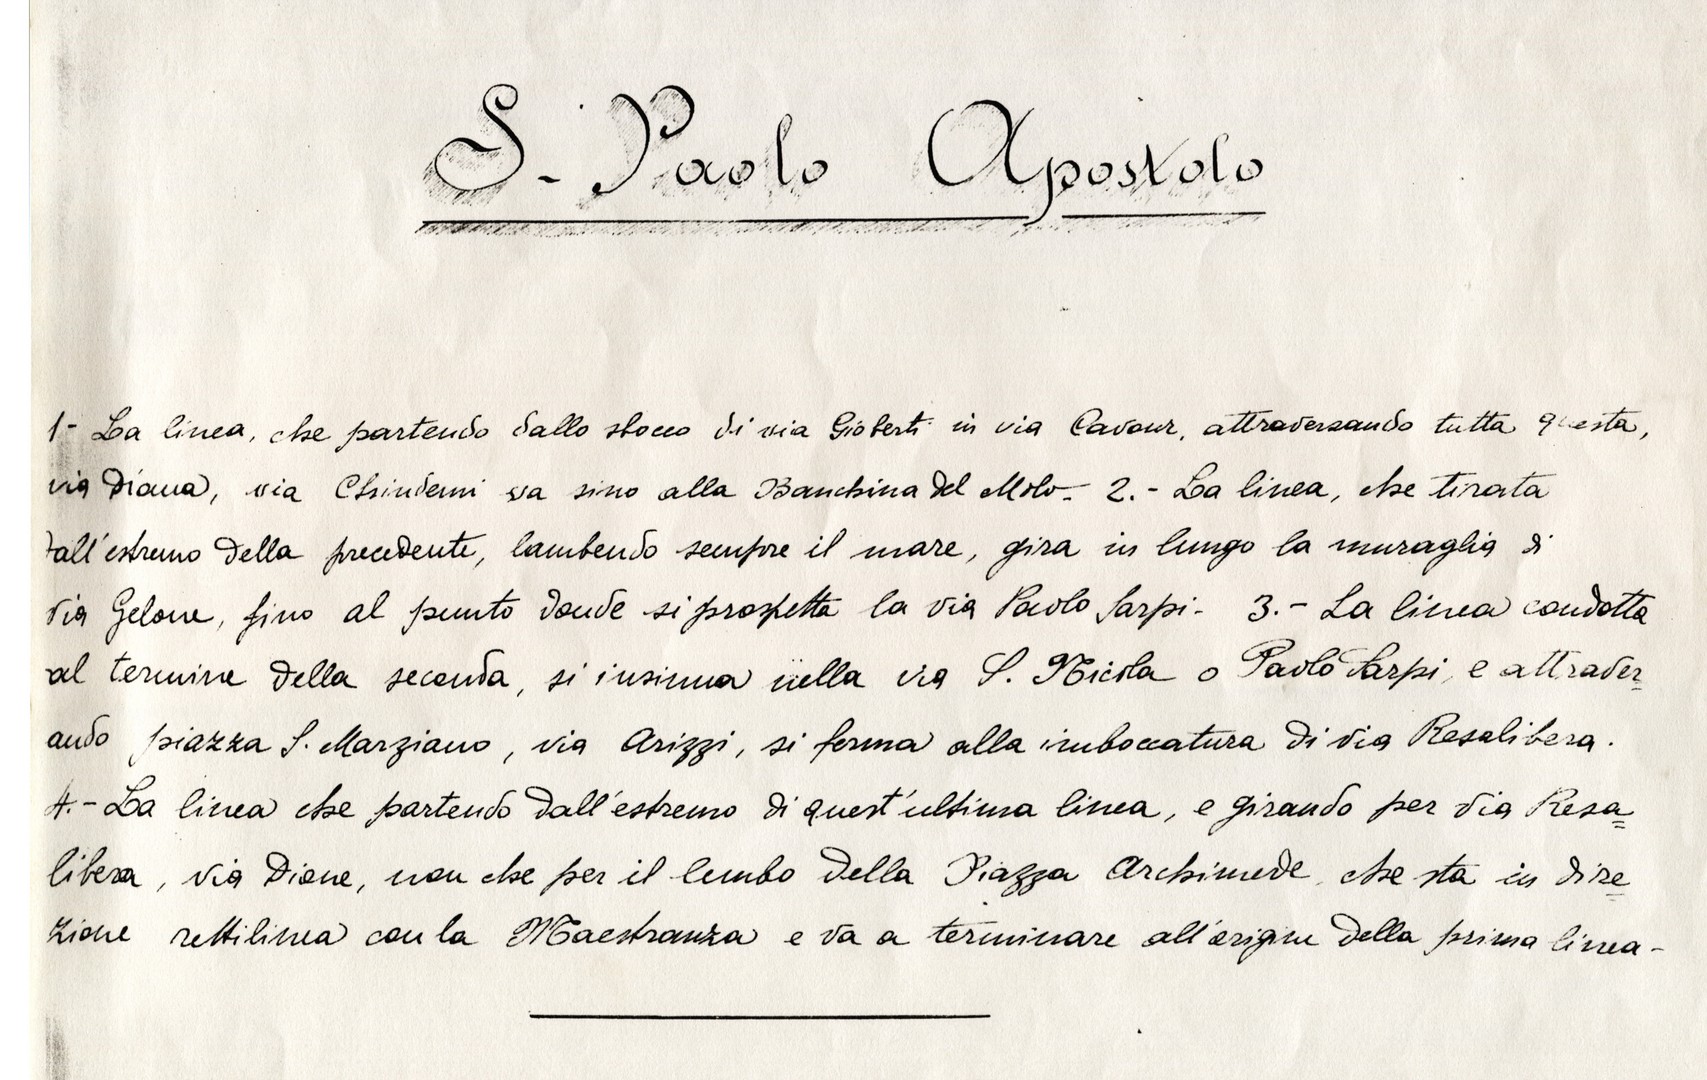 S. Paolo Apostolo
1- La linea, che partendo dallo sbocco di via Gioberti in via Cavour, attraversando tutta questa,
via Diana, via Chindemi va sino alla Banchina del Molo - 2.- La linea, che tirata
dall'estremo della precedente, lambendo sempre il mare, gira in lungo la muraglia di
via Gelone, fino al punto donde si prospetta la via Paolo Sarpi - 3.- La linea condotta
al termine della seconda, si insinua nella via S. Nicola o Paolo Sarpi, e attraver=
ando piazza S. Marziano, via Arizzi, si ferma alla imboccatura di via Resalibera.
4.- La linea che partendo dall'estremo di quest'ultima linea, e girando per via Resa=
libera, via Dione, non che per il lembo della Piazza Archimede, che sta in dire=
zione rettilinea con la Maestranza e va a terminare all'origine della prima linea -